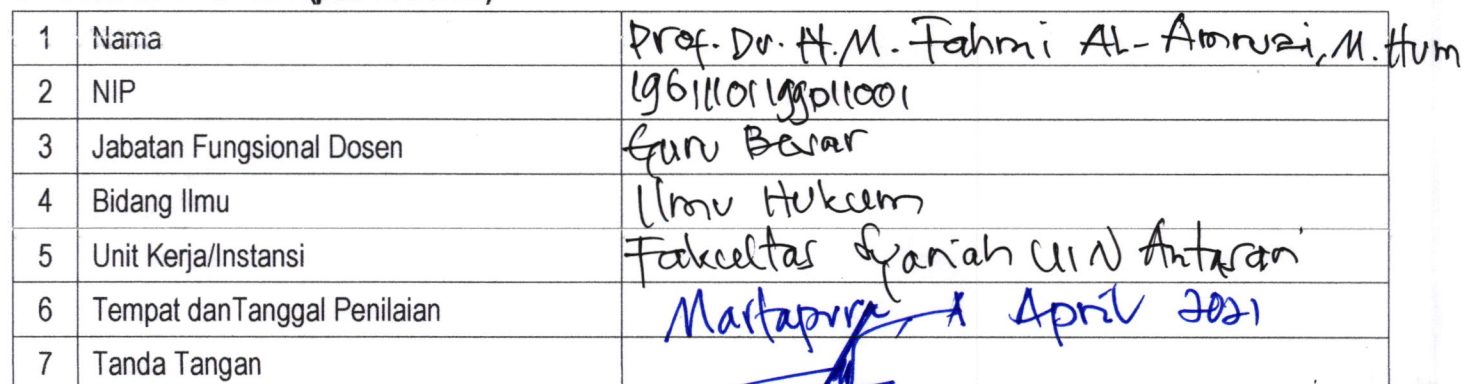 1 Nama Prof. Dr. H.M. Fahmi AL-Amruzi, M.Hum
2 NIP 19611101199011001
3 Jabatan Fungsional Dosen Guru Besar
4 Bidang Ilmu Ilmu Hukum
5 Unit Kerja/Instansi Fakultas Syariah UIN Antasari
6 Tempat danTanggal Penilaian Martapura, April 2021
7 Tanda Tangan